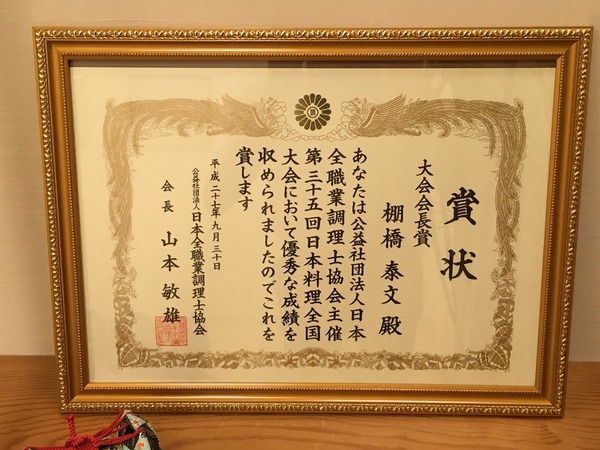 賞状
大会会長賞
棚橋泰文殿
あなたは公益社団法人日本
全職業調理士協会主催
第三十五回日本料理全国
大会において優秀な成績を
収められましたのでこれを
賞します
平成二十七年九月三十日
公益社団法人日本全職業調理士協会
会長 山本敏雄